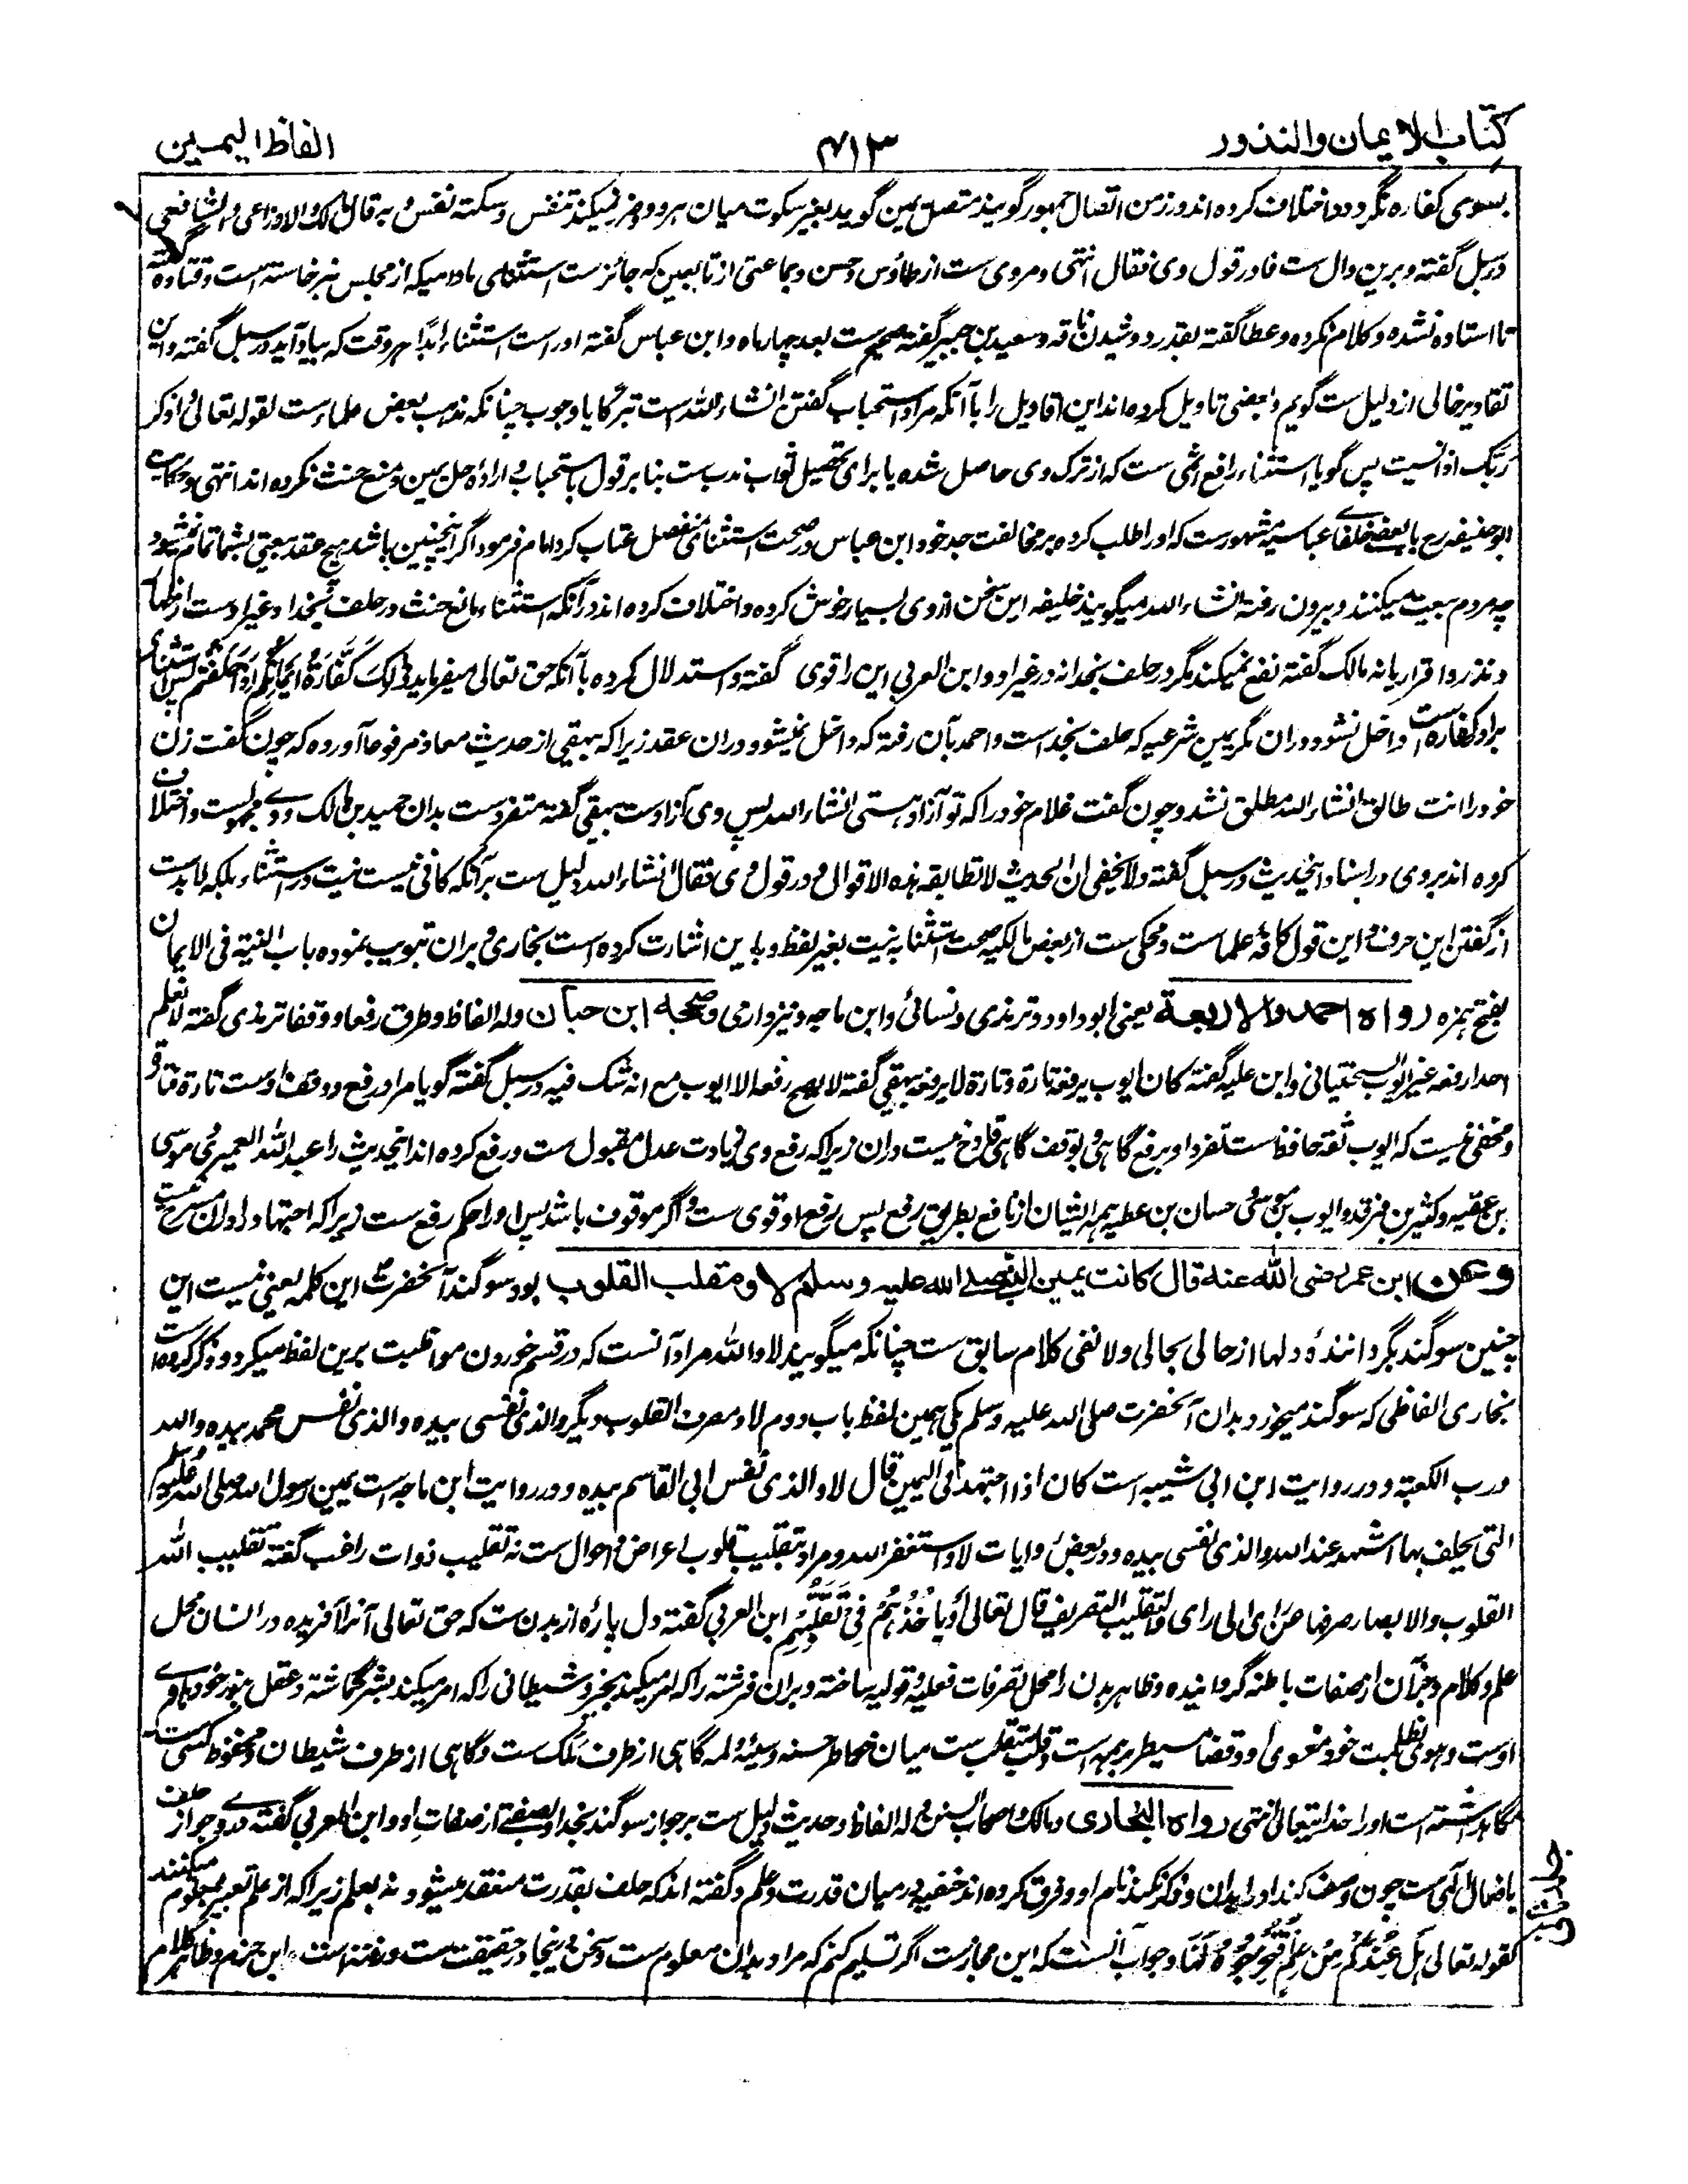 کتاب الایمان والنذور
۴۱۳
الفاظ الیمین
بسوی کفاره نگردد و اختلاف کرده اند در زمن اتصال جمهور گویند متصل یمین گوید بغیر سکوت میان هر دو و ضرر نمیکند تنفس و سکته نفس و به قال مالک والاوزاعی والشافعی
در سبل گفته و برین دال ست فا در قول وی فقال انتهی و مروی ست از طاؤس و حسن و جماعتی از تابعین که جائز ست استثنای مادامیکه از مجلس بر نخاسته است و قتاده گفته
تا استاده نشده و کلام نکرده و عطا گفته بقدر دوشیدن ناقه و سعید بن جبیر گفته صحیح ست بعد چهار ماه و ابن عباس گفته او راست استثناء ابدا هر وقت که بیاد آید در سبل گفته و این
تقادیر خالی از دلیل ست گویم و بعضی تاویل کرده اند این اقاویل را بآنکه مراد استحباب گفتن انشاء الله است تبرکا یا وجوب چنانکه مذهب بعض علماء ست لقوله تعالی واذکر
ربک اذا نسیت پس گویا استثناء رافع اثمی ست که از ترک وی حاصل شده یا برای تحصیل ثواب ندب ست بنا بر قول باستحباب و اراده حل یمین و منع حنث نکرده اند انتهی و حکایت
ابو حنیفه رح با بعض خلفای عباسیه مشهور ست که او را طلب کرده بر مخالفت جد خود ابن عباس در صحت استثنای منفصل عتاب کرد امام فرمود اگر اینچنین باشد هیچ عقد بیعتی بشما تمام نشود
چه مردم بیعت میکنند و بیرون رفته انشاء الله میگویند خلیفه این سخن از وی بسیار خوش کرده و اختلاف کرده اند در آنکه استثناء مانع حنث در حلف بخدا و غیر اوست از ظهار
و نذر و اقرار یا نه مالک گفته نفع نمیکند مگر در حلف بخدا نه در غیر او و ابن العربی این را قوی گفته و استدلال کرده بآنکه حق تعالی میفرماید ذٰلِکَ کَفَّارَةُ اَیْمَانِکُمْ اِذَا حَلَفْتُمْ پس استثنای
برادر کفاره است داخل نشود دران مگر یمین شرعیه که حلف بخداست و احمد بآن رفته که داخل نمیشود دران عقد زیرا که بیهقی از حدیث معاذ مرفوعا آورده که چون گفت زن
خود را انت طالق انشاء الله مطلق نشد و چون گفت غلام خود را که تو آزاد هستی انشاء الله پس وی آزاد ست بیهقی گفته متفرد ست بدان حمید بن مالک و وی مجهول ست و اختلاف
کرده اند بروی در اسناد اینحدیث در سبل گفته ولا یخفی ان الحدیث لا تطابقه هذه الاقوال و در قول وی فقال انشاء الله دلیل ست برآنکه کافی نیست نیت در استثناء بلکه لابد ست
از گفتن این حروف و این قول کافه علماست و محکی ست از بعض مالکیه صحت استثنا به نیت بغیر لفظ و باین اشارت کرده است بخاری و بران تبویب نموده باب النیة فی الایمان
بفتح همزه رواه احمد والاربعة یعنی ابو داود و ترمذی و نسائی و ابن ماجه و نیز دارمی وصححه ابن حبان وله الفاظ وطرق رفعا و وقفا ترمذی گفته لا نعلم
احدا رفعه غیر ایوب السختیانی و ابن علیه گفته کان ایوب یرفعه تارة وتارة لا یرفعه بیهقی گفته لا یصح رفعه الا ایوب مع انه شک فیه در سبل گفته گویا مراد رفع و وقف اوست تارة فتارة
و مخفی نیست که ایوب ثقه حافظ ست تفرد او برفع گاهی و بوقف گاهی قادح نیست دران زیرا که رفع وی زیادت عدل مقبول ست و رفع کرده اند اینحدیث را عبد الله العمری و موسی
بن عقبه و کثیر بن فرقد و ایوب بن موسی و حسان بن عطیه همه ایشان از نافع بطریق رفع پس رفع او قوی ست و اگر موقوف باشد پس او را حکم رفع ست زیرا که اجتهاد را دران مسرح نیست
وعن ابن عمر رضی الله عنه قال کانت یمین النبی صلی الله علیه وسلم لا ومقلب القلوب بود سوگند آنحضرت این کلمه یعنی نیست این
چنین سوگند بگرداننده دلها از حالی بحالی و لا نفی کلام سابق ست چنانکه میگویند لا والله مراد آنست که در قسم خوردن مواظبت برین لفظ میکرد و ذکر کرده است
بخاری الفاظی که سوگند میخورد بدان آنحضرت صلی الله علیه وسلم یکی همین لفظ باب دوم لا ومصرف القلوب دیگر والذی نفسی بیده والذی نفس محمد بیده والله
ورب الکعبة و در روایت ابن ابی شیبه است کان اذا اجتهد فی الیمین قال لا والذی نفس ابی القاسم بیده و در روایت ابن ماجه است یمین رسول الله صلی الله علیه وسلم
التی یحلف بها اشهد عند الله والذی نفسی بیده و در بعض روایات لا واستغفر الله و مراد بتقلیب قلوب اعراض و احوال ست نه تقلیب ذوات راغب گفته تقلیب الله
القلوب والابصار صرفها عن رای الی رای والتقلیب التصریف قال تعالی اَوْ یَاْخُذَهُمْ فِیْ تَقَلُّبِهِمْ ابن العربی گفته دل پاره از بدن ست که حق تعالی آنرا آفریده در انسان محل
علم و کلام و جز آن از صفات باطنه گردانیده و ظاهر بدن را محل تصرفات فعلیه و قولیه ساخته و بران فرشته را که امر میکند بخیر و شیطانی را که امر میکند بشر گماشته و عقل بنور خود هادی
اوست و هوی بظلمت خود مغوی او و قضا مسیطر بر همه است و قلب متقلب ست میان خواطر حسنه و سیئه و لمه گاهی از طرف ملک ست و گاهی از طرف شیطان و محفوظ کسی ست که
نگاهداشته است او را خدایتعالی انتهی رواه البخاری و مالک و اصحاب السنن و له الفاظ و حدیث دلیل ست بر جواز سوگند بخدا و بصفتی از صفات او و ابن العربی گفته در وی جواز حلف
بافعال الهی ست چون وصف کند او را بدان و ذکر نکند نام او و فرق کرده اند حنفیه در میان قدرت و علم و گفته اند که حلف بقدرت منعقد میشود نه بعلم زیرا که از علم تعبیر بمعلوم میکنند
کقوله تعالی هَلْ عِنْدَکُمْ مِنْ عِلْمٍ فَتُخْرِجُوْهُ لَنَا و جواب آنست که این مجاز ست اگر تسلیم کنیم که مراد بدان معلوم ست و سخن در اینجا در حقیقت ست ابن حزم و ظاهر کلام